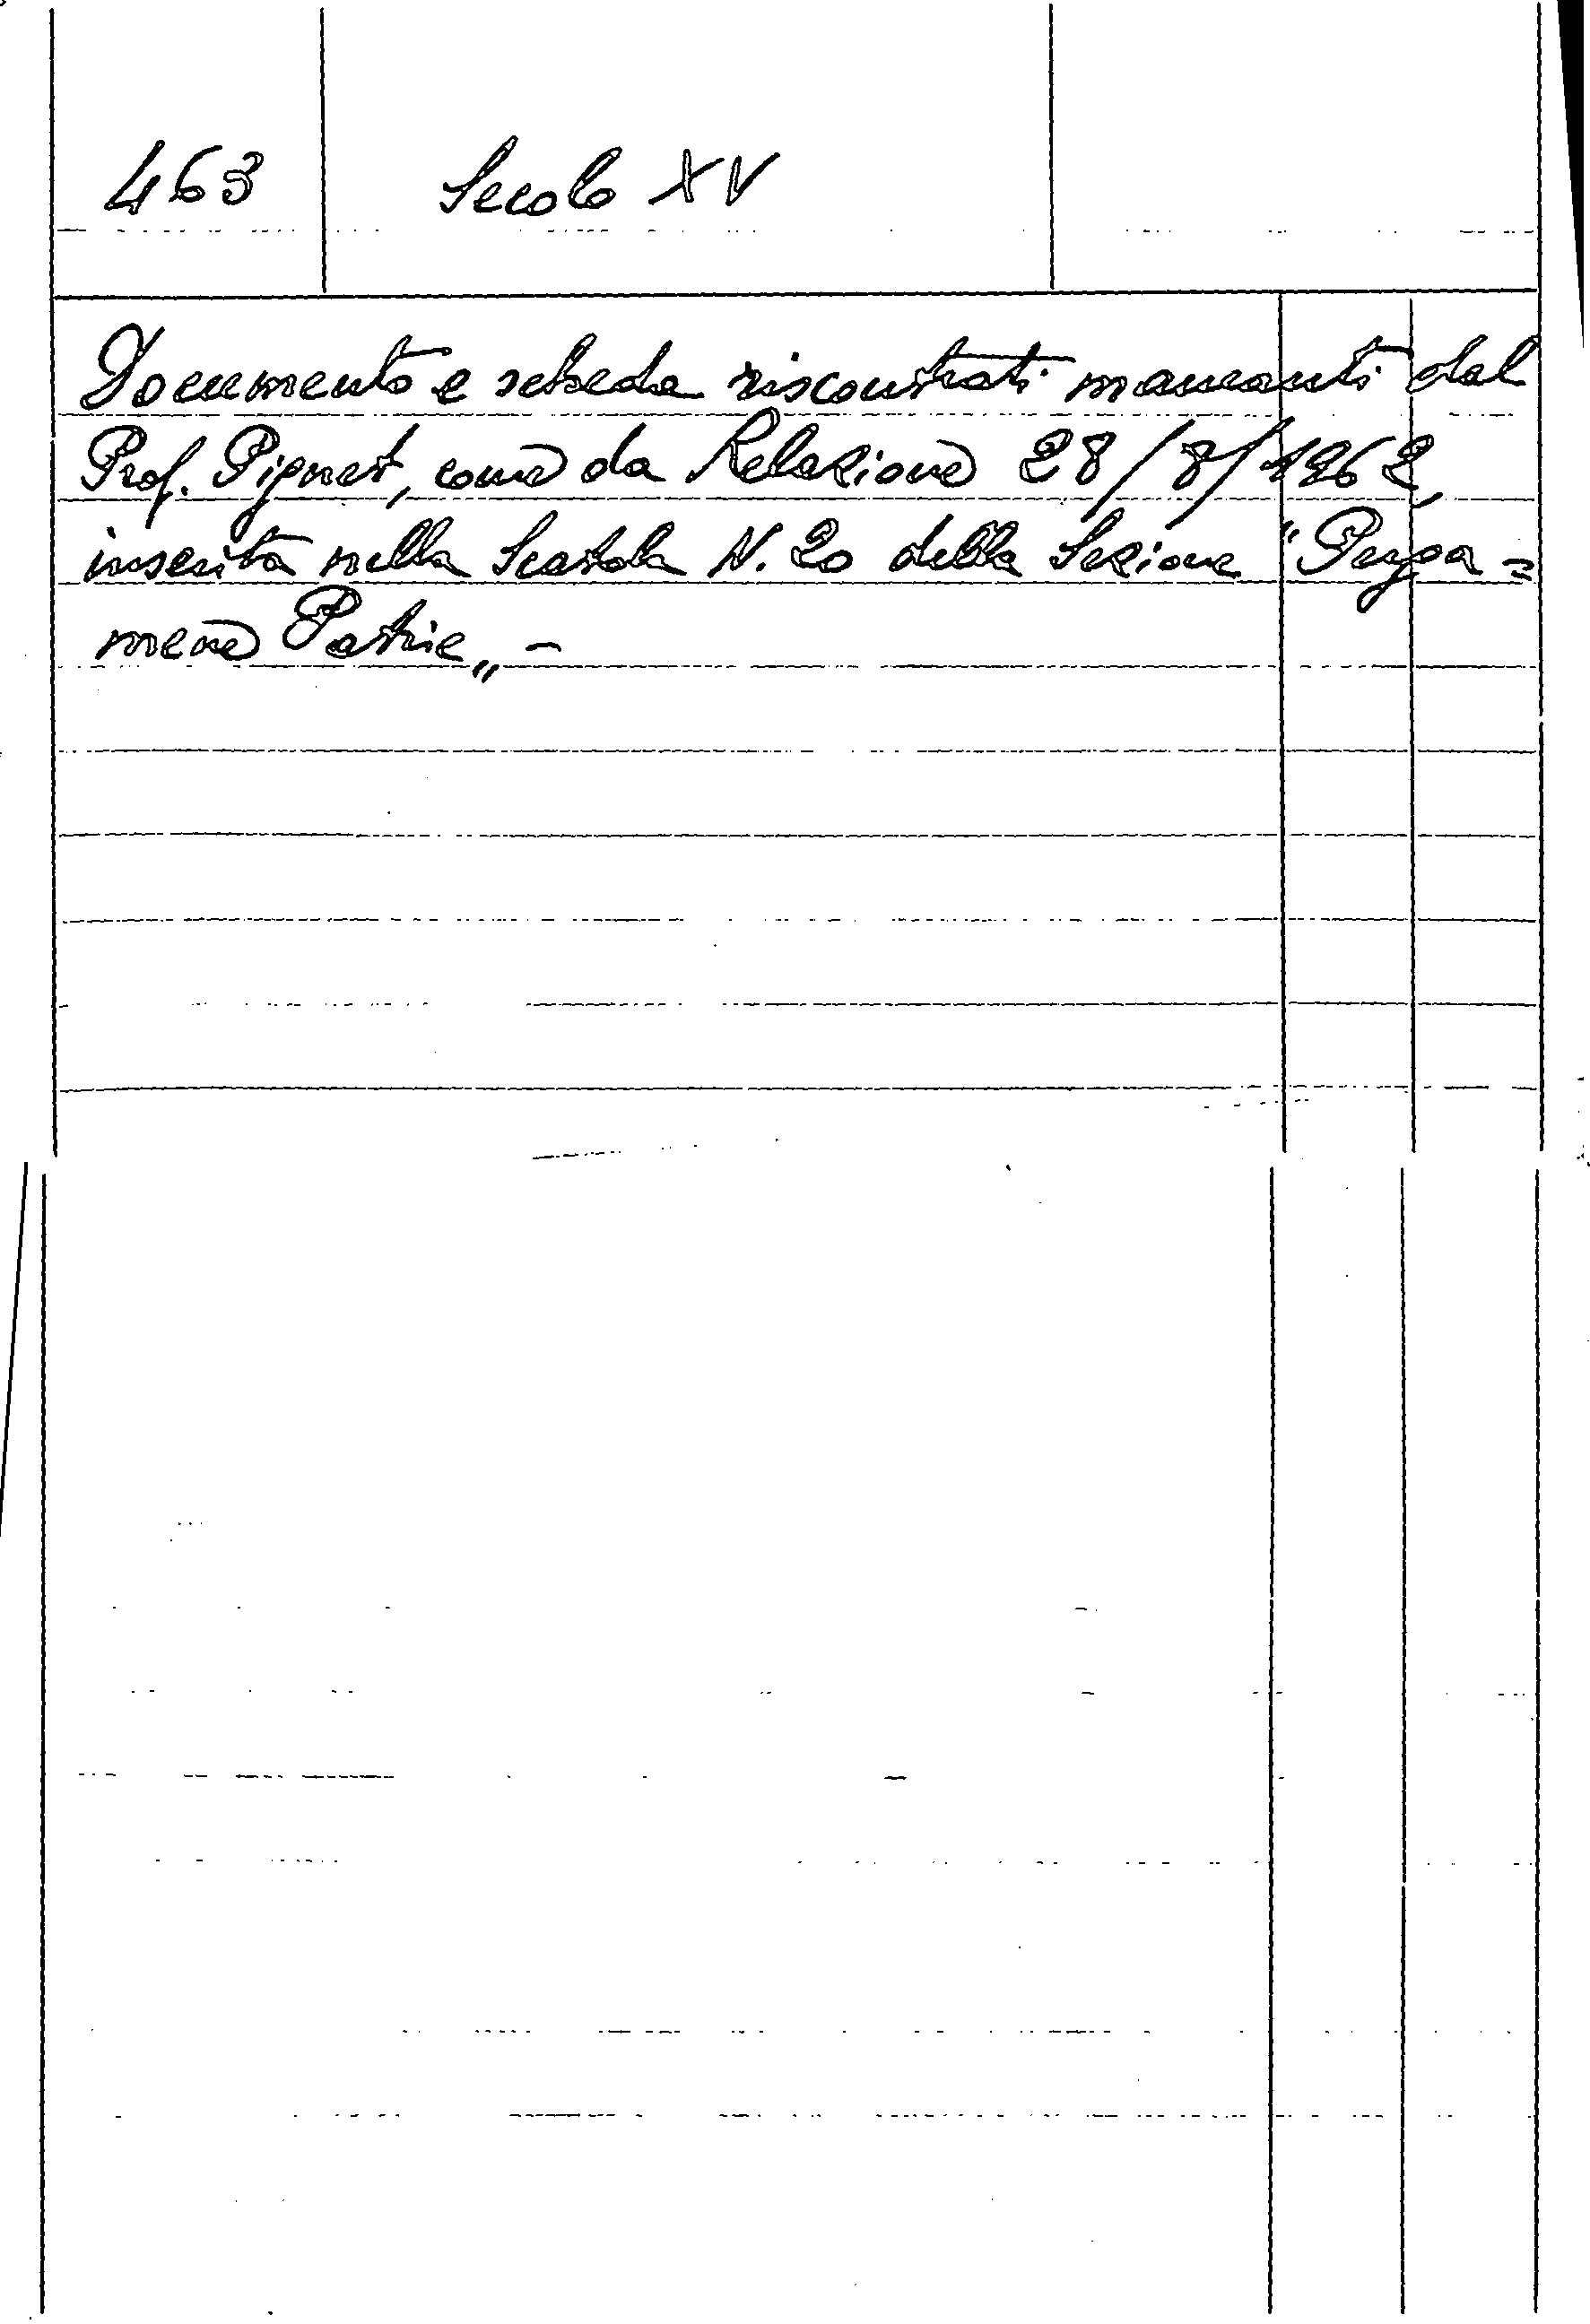 463 Secolo XV
Documento e scheda riscontrati mancanti dal
Prof. Pignet, come da Relazione 28/8/1962,
inserita nella Scatola N. 20 della Sezione "Perga=
mene Patrie„ -